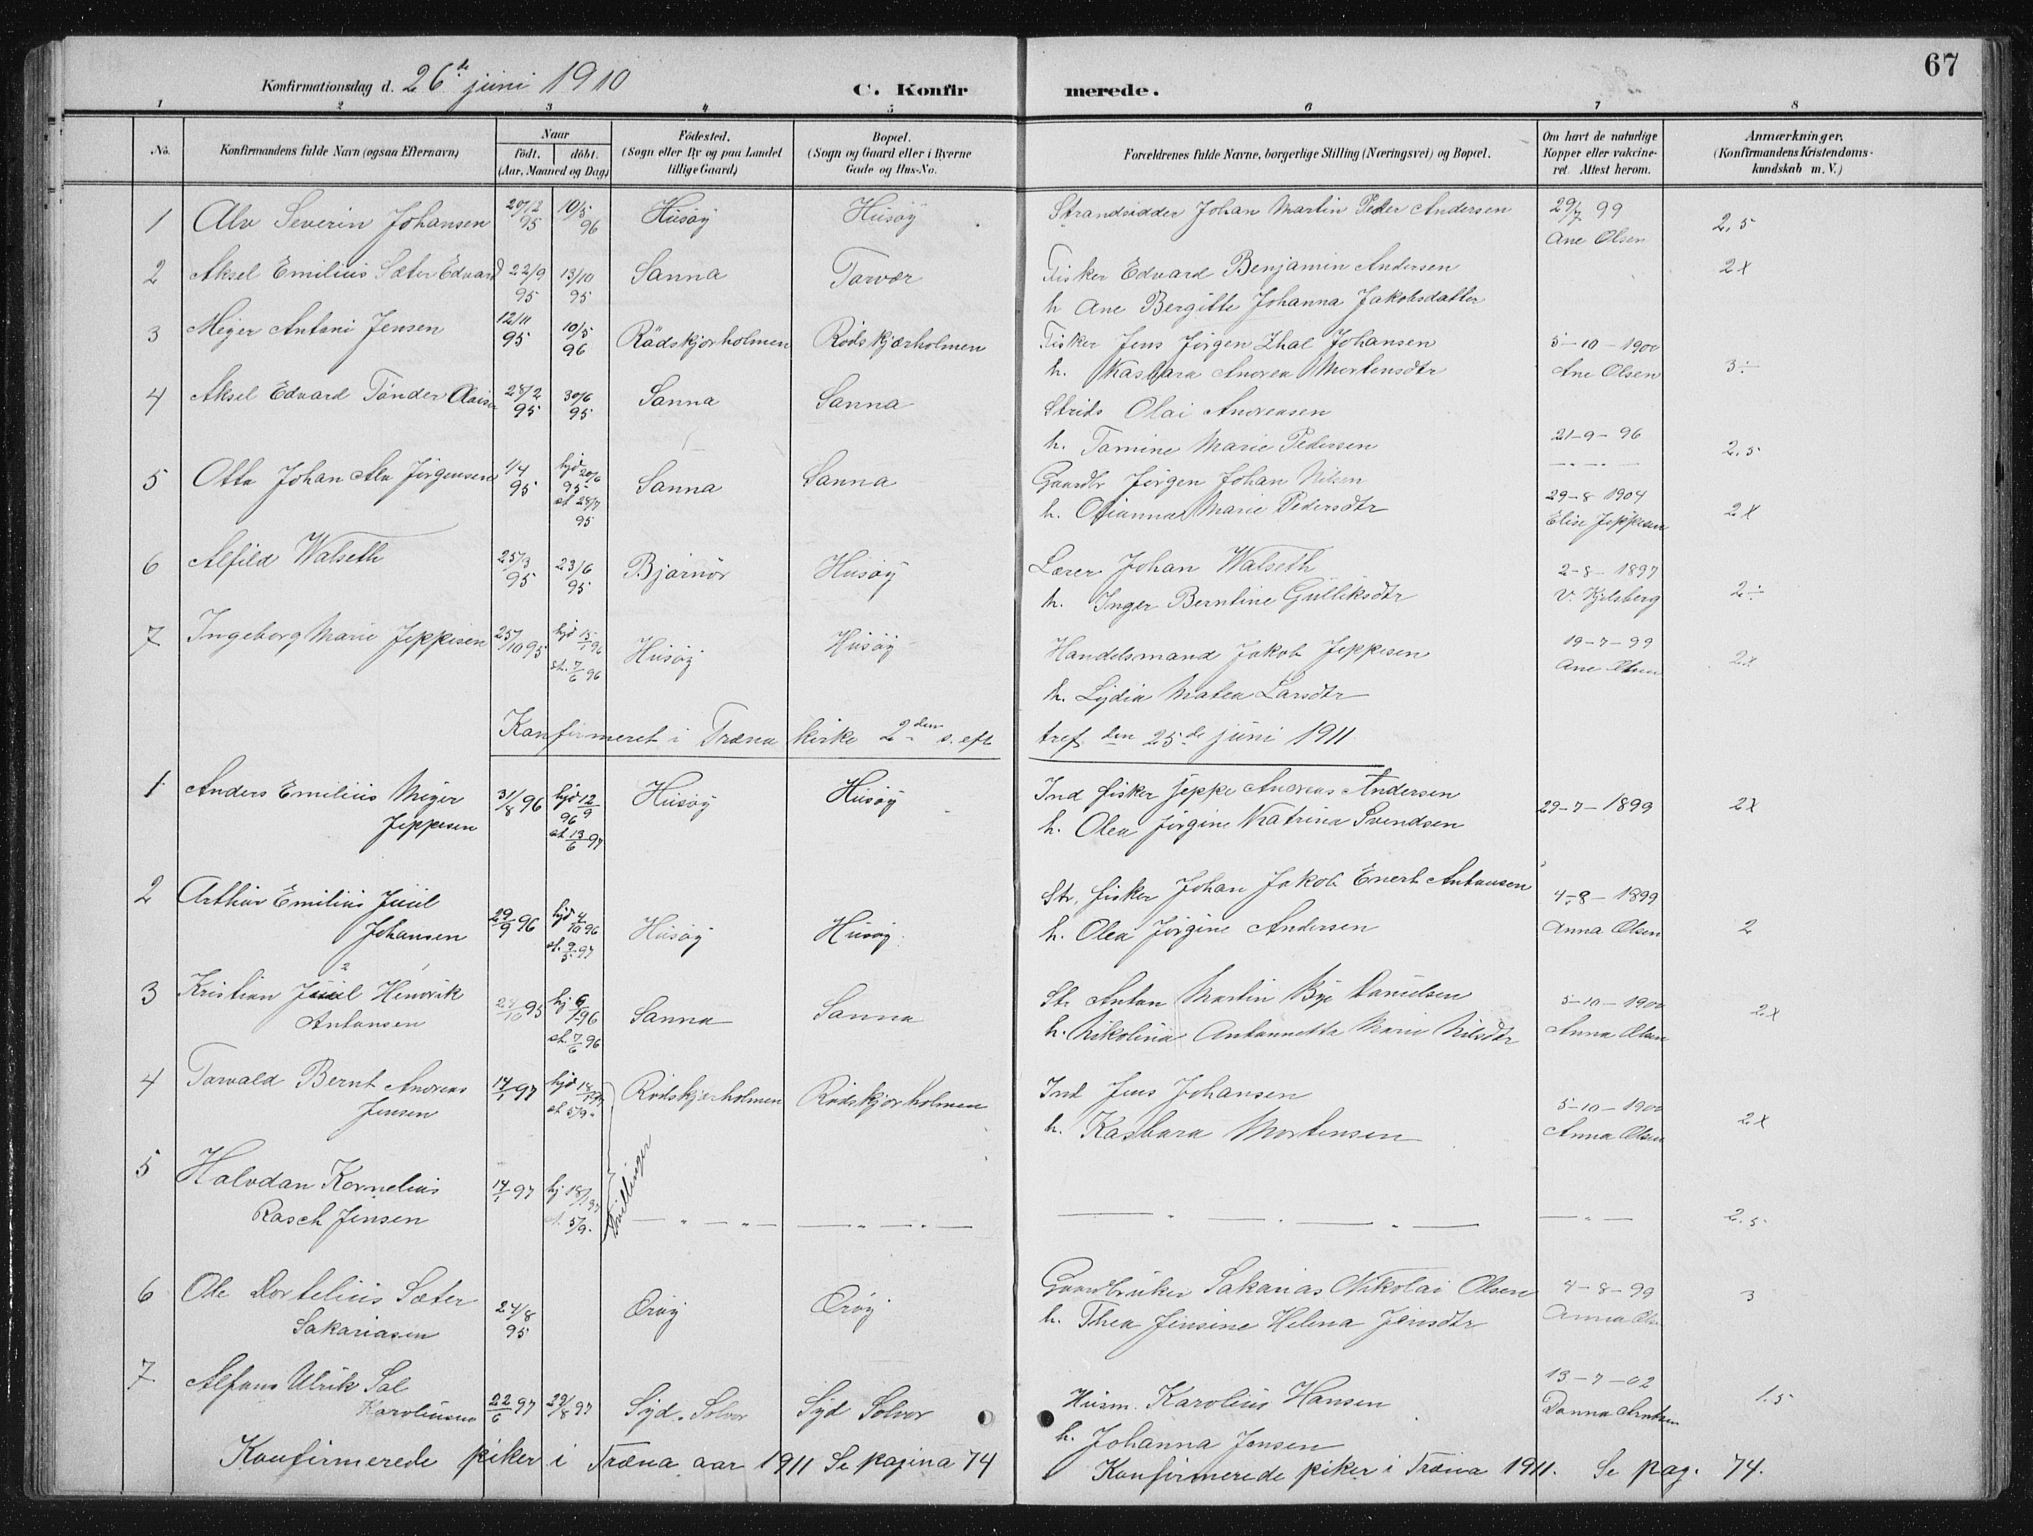 67
Konfirmationsdag d. 26de juni 1910 C. Konfirmerede.
1 2 3 4 5 6 7 8
No. Konfirmandens fulde Navn (ogsaa Efternavn) Naar født. døbt. (Aar, Maaned og Dag) Fødested. (Sogn eller By og paa Landet tillige Gaard) Bopæl. (Sogn og Gaard eller i Byerne Gade og Hus-No. Forældrenes fulde Navne, borgerlige Stilling (Næringsvei) og Bopæl. Om havt de naturlige Kopper eller vakcineret. Attest herom. Anmærkninger. (Konfirmandens Kristendomskundskab m. V.)
1 Alv Severin Johansen 20/2 95 10/5 96 Husøy Husøy Strandsidder Johan Martin Peder Andersen 29/7 99 Ane Olsen 2,5
2 Aksel Emilius Sæter Edvard 22/9 95 13/10 95 Sanna Torvær Fisker Edvard Benjamin Andersen 2x
h. Ane Bergitte Johanna Jakobsdatter
3 Meyer Antoni Jensen 12/11 95 10/5 96 Rødskjærholmen Rødskjærholmen Fisker Jens Jørgen Johansen 5-10-1900
h. Kasbara Andrea Mortensdtr Ane Olsen 3÷
4 Aksel Edvard Tønder Olaisen 28/2 95 30/6 95 Sanna Sanna Strids Olai Andreasen
h. Tomine Marie Pedersen 21-9-96 2,5
5 Otto Johan Alv Jørgensen 1/4 95 hjd 20/6 95 st 28/7 95 Sanna Sanna Gaardbr Jørgen Johan Nilsen
h. Marie Pedersdtr 29-8 1904 Elise Jeppesen 2x
6 Alfild Walseth 25/3 95 23/6 95 Bjørnør Husøy Lærer Johan Walseth 2-8-1897
h. Inger Berntine Gulliksdtr V. Kjelsberg 2÷
7 Ingeborg Marie Jeppesen 25/10 95 hjd 15/1 96 st. 7/6 96 Husøy Husøy Handelsmand Jakob Jeppesen 19-7-99 Ane Olsen 2x
h. Lydia Malea Larsdtr
Konfirmeret i Træna kirke 2den s. eft tref. den 25de juni 1911
1 Anders Emilius Meyer Jeppesen 31/8 96 hjd 12/9 96 st 13/6 97 Husøy Husøy Ind fisker Jeppe Andreas Andersen 29-7-1899 2x
h. Olea Jørgine Katrina Svendsen
2 Arthur Emilius Juul Johansen 29/9 96 hjd 4/10 96 st. 9/5 97 Husøy Husøy Str. fisker Johan Jakob Enert Antonsen 4-8-1899
h. Olea Jørgine Andersen Anna Olsen 2
3 Kristian Juul Hendrik Antonsen 24/10 95 hj 6/1 96 st. 7/6 96 Sanna Sanna St. Anton Martin Bye Danielsen 5-10-1900 2x
h. Nikolina Antonette Marie Nilsdtr Anna Olsen
4 Torvald Bernt Andreas Jensen 14/1 97 hjd 18/1 97 st 5/9 Rødskjærholmen Rødskjærholmen Ind Jens Johansen 5-10-1900
h. Kasbara Mortensen Anna Olsen 2x
Tvillinger
5 Halvdan Kornelius Rasch Jensen 14/1 97 hj 18/1 97 st. 5/9 — " — " — — " — " — — " — " — — " — 2,5
6 Ole Dortelius Sæter Sakariasen 24/8 95 Ørøy Ørøy Gaardbruker Sakarias Nikolai Olsen 4-8-99 3
h. Thea Jensine Helena Jensdtr Anna Olsen
7 Alfons Ulrik Sal Karoliusen 22/6 97 29/8 97 Syd. Solvær Syd Solvær Husm. Karolius Hansen 13-7-02 1.5
h. Johanna Jensen
Konfirmerede piker i Træna aar 1911 Se pagina 74 Konfirmerede piker i Træna 1911. Se pag. 74.